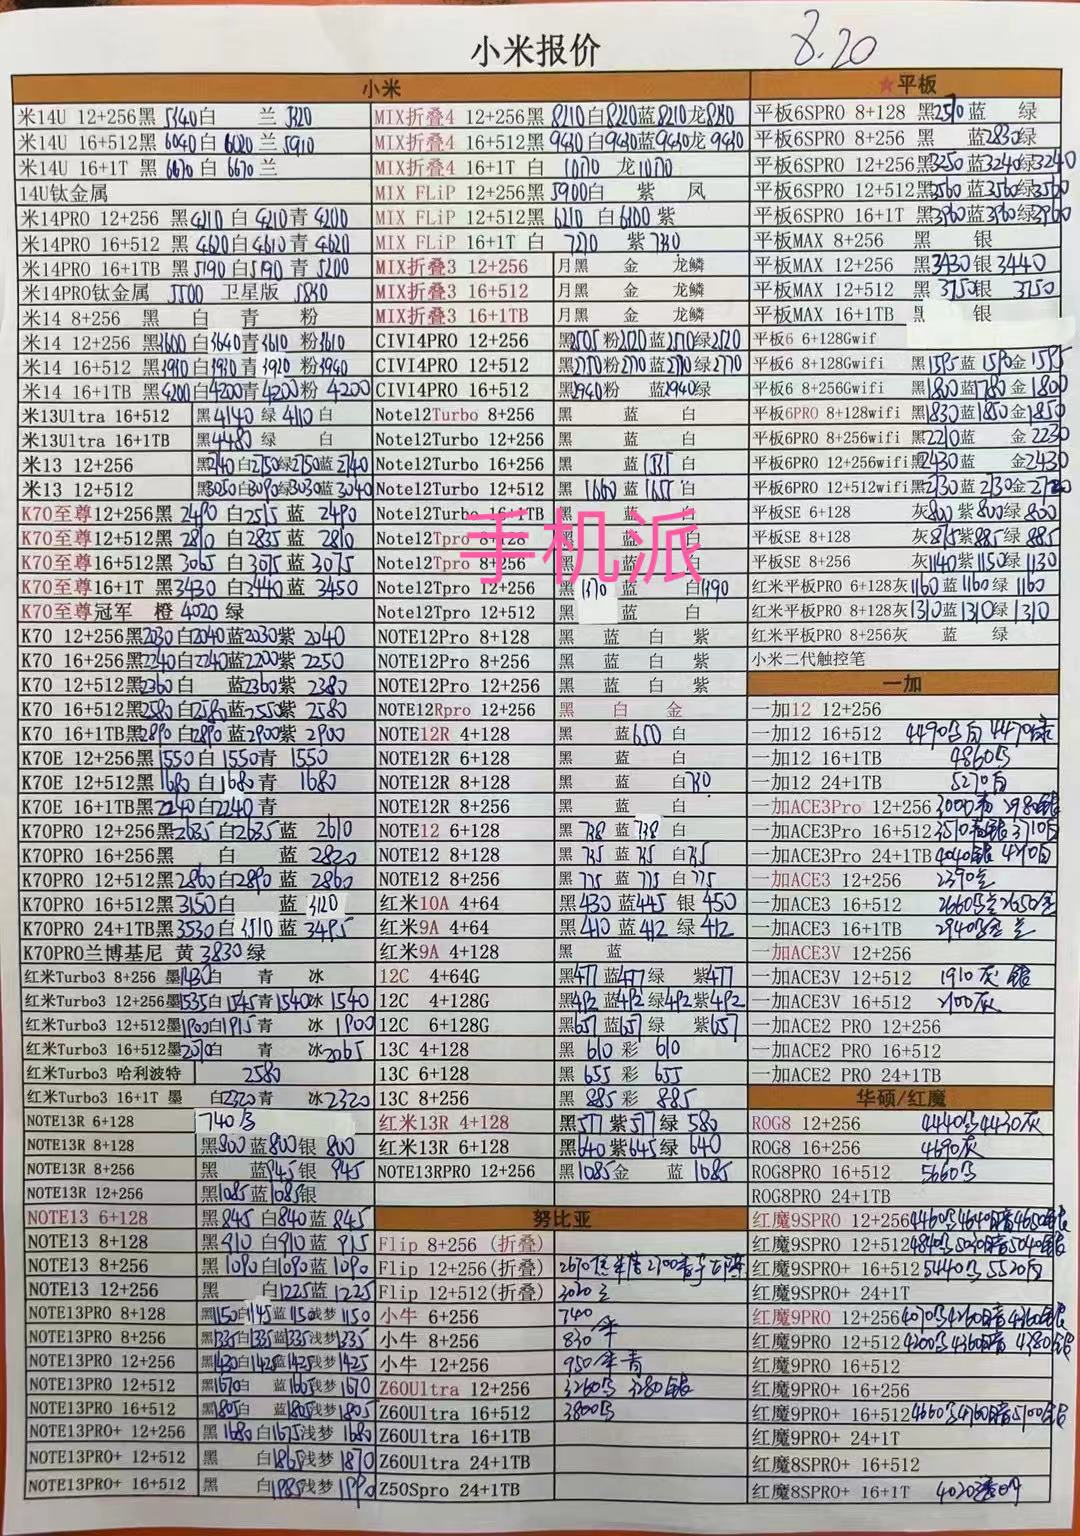 小米报价
8.20
小米
米14U 12+256黑 5340白 兰 5320
米14U 16+512黑6040白 6020 兰 5910
米14U 16+1T 黑 6670白 6670兰
14U钛金属
米14PRO 12+256 黑 4210 白 4210青 4200
米14PRO 16+512 黑 4620白4610青 4620
米14PRO 16+1TB 黑 5190白5190青 5200
米14PRO钛金属 5500 卫星版 5830
米14 8+256 黑 白 青 粉
米14 12+256 黑3600白3640青3610 粉3610
米14 16+512 黑3930白3930青3920粉3940
米14 16+1TB 黑4200白4200青4200粉 4200
米13Ultra 16+512 黑4140绿 4110白
米13Ultra 16+1TB 黑4480绿 白
米13 12+256
米13 12+512 黑3050白3090绿3030蓝3040
K70至尊12+256黑 2490 白2515 蓝 2490
K70至尊12+512黑 2810 白2835 蓝 2810
K70至尊16+512黑 3065 白3075蓝3075
K70至尊16+1T 黑3430 白2440蓝 3450
K70至尊冠军 橙 4020 绿
K70 12+256黑2030白2040蓝2030紫 2040
K70 16+256黑2240白2240蓝2200紫 2250
K70 12+512黑2360白 蓝2360紫 2380
K70 16+512黑2580白2580蓝2550紫 2580
K70 16+1TB黑2890白2890蓝2900紫 2900
K70E 12+256黑1550白1550青 1550
K70E 12+512黑1680白1680青 1680
K70E 16+1TB黑2240白2240青
K70PRO 12+256黑2635白2635蓝 2610
K70PRO 16+256黑 白 蓝 2820
K70PRO 12+512黑2860白2890蓝 2860
K70PRO 16+512黑3150白 蓝 3120
K70PRO 24+1TB黑3530白3510蓝 3495
K70PRO兰博基尼 黄3830绿
红米Turbo3 8+256 墨1430白 青 冰
红米Turbo3 12+256墨1535白1545青1540冰 1540
红米Turbo3 12+512墨1900白1915青 冰 1900
红米Turbo3 16+512墨2070白 青 冰2065
红米Turbo3 哈利波特 2580
红米Turbo3 16+1T 墨 白2320青 冰2320
NOTE13R 6+128 740
NOTE13R 8+128 黑800蓝800银 800
NOTE13R 8+256 黑 蓝945银 945
NOTE13R 12+256 黑1085蓝1085银
NOTE13 6+128 黑845 白840蓝 845
NOTE13 8+128 黑910 白910蓝 915
NOTE13 8+256 黑1090白1090蓝 1090
NOTE13 12+256 黑 白1225蓝1225
NOTE13PRO 8+128 黑1150白1145蓝1150浅梦1150
NOTE13PRO 8+256 黑1335白1335蓝1335浅梦1335
NOTE13PRO 12+256 黑1430白1425蓝1425浅梦1425
NOTE13PRO 12+512 黑1670白 蓝1665浅梦1670
NOTE13PRO 16+512 黑1805白 蓝1805浅梦1805
NOTE13PRO+ 12+256 黑1680白1675浅梦 1680
NOTE13PRO+ 12+512 黑 白1865浅梦 1870
NOTE13PRO+ 16+512 黑 白1985浅梦 1990
MIX折叠4 12+256黑 8210白8220蓝8210龙8230
MIX折叠4 16+512黑 9430白9430蓝9430龙 9430
MIX折叠4 16+1T 白 龙
MIX FLiP 12+256黑5900白 紫 凤
MIX FLiP 12+512黑6210 白6100紫
MIX FLiP 16+1T 白 7270 紫
MIX折叠3 12+256 月黑 金 龙鳞
MIX折叠3 16+512 月黑 金 龙鳞
MIX折叠3 16+1TB 月黑 金 龙鳞
CIVI4PRO 12+256
CIVI4PRO 12+512
CIVI4PRO 16+512 黑2940粉 蓝2940绿
Note12Turbo 8+256 黑 蓝 白
Note12Turbo 12+256 黑 蓝 白
Note12Turbo 16+256 黑 蓝1535白
Note12Turbo 12+512 黑 1660蓝1655白
Note12Turbo 16+1TB 黑 蓝 白
Note12Tpro 黑 蓝 白
Note12Tpro 8+256 黑 蓝 白
Note12Tpro 12+256 黑1370蓝 白1390
Note12Tpro 12+512 黑 蓝 白
NOTE12Pro 8+128 黑 蓝 白 紫
NOTE12Pro 8+256 黑 蓝 白 紫
NOTE12Pro 12+256 黑 蓝 白 紫
NOTE12Rpro 12+256 黑 白 金
NOTE12R 4+128 黑 蓝650白
NOTE12R 6+128 黑 蓝 白
NOTE12R 8+128 黑 蓝 白730
NOTE12R 8+256 黑 蓝 白
NOTE12 6+128 黑738 蓝738白
NOTE12 8+128 黑735 蓝735 白735
NOTE12 8+256 黑775 蓝775 白775
红米10A 4+64 黑430 蓝445 银 450
红米9A 4+64 黑410 蓝412 绿 412
红米9A 4+128 黑 蓝
12C 4+64G 黑477蓝477绿 紫477
12C 4+128G 黑492蓝492绿492紫492
12C 6+128G 黑657蓝657绿 紫657
13C 4+128 黑 610 彩 610
13C 6+128 黑 655 彩 655
13C 8+256 黑 885彩 885
红米13R 4+128 黑577紫577绿 580
红米13R 6+128 黑640紫645绿 640
NOTE13RPRO 12+256 黑1085金 蓝 1085
努比亚
Flip 8+256 (折叠)
Flip 12+256(折叠)
Flip 12+512(折叠)
小牛 6+256 740
小牛 8+256 830
小牛 12+256 950 青
Z60Ultra 12+256 3260 3280银
Z60Ultra 16+512 3800
Z60Ultra 16+1TB
Z60Ultra 24+1TB
Z50Spro 24+1TB
★平板
平板6SPRO 8+128 黑2570蓝 绿
平板6SPRO 8+256 黑 蓝2830绿
平板6SPRO 12+256黑3250蓝3240绿3240
平板6SPRO 12+512黑3560蓝3560绿3560
平板6SPRO 16+1T 黑3960蓝3960绿3960
平板MAX 8+256 黑 银
平板MAX 12+256 黑3430银3440
平板MAX 12+512 黑 3750银 3750
平板MAX 16+1TB 黑 银
平板6 6+128Gwif
平板6 8+128Gwifi 黑1595蓝1590金1595
平板6 8+256Gwifi 黑1800蓝1780金1800
平板6PRO 8+128wifi 黑1830蓝1850金1850
平板6PRO 8+256wifi 黑2210蓝 金2230
平板6PRO 12+256wifi黑2430蓝 金2430
平板6PRO 12+512wifi
平板SE 6+128 灰800紫800绿800
平板SE 8+128 灰875紫885绿885
平板SE 8+256 灰1140紫1150绿1130
红米平板PRO 6+128灰1160蓝1160绿 1160
红米平板PRO 8+128灰1310蓝1310绿1310
红米平板PRO 8+256灰 蓝 绿
小米二代触控笔
一加
一加12 12+256
一加12 16+512 4490 白 4470
一加12 16+1TB 4860
一加12 24+1TB 5270白
一加ACE3Pro 12+256
一加ACE3Pro 16+512
一加ACE3Pro 24+1TB
一加ACE3 12+256 2390
一加ACE3 16+512
一加ACE3 16+1TB
一加ACE3V 12+256
一加ACE3V 12+512 1910灰 银
一加ACE3V 16+512 2100灰
一加ACE2 PRO 12+256
一加ACE2 PRO 16+512
一加ACE2 PRO 24+1TB
华硕/红魔
ROG8 12+256 4440 4430灰
ROG8 16+256 4690灰
ROG8PRO 16+512 5660
ROG8PRO 24+1TB
红魔9SPRO 12+256
红魔9SPRO 12+512
红魔9SPRO+ 16+512 5440 5520白
红魔9SPRO+ 24+1T
红魔9PRO 12+256
红魔9PRO 12+512
红魔9PRO 16+512
红魔9PRO+ 16+256
红魔9PRO+ 16+512
红魔9PRO+ 24+1T
红魔8SPRO+ 16+512
红魔8SPRO+ 16+1T
手机派